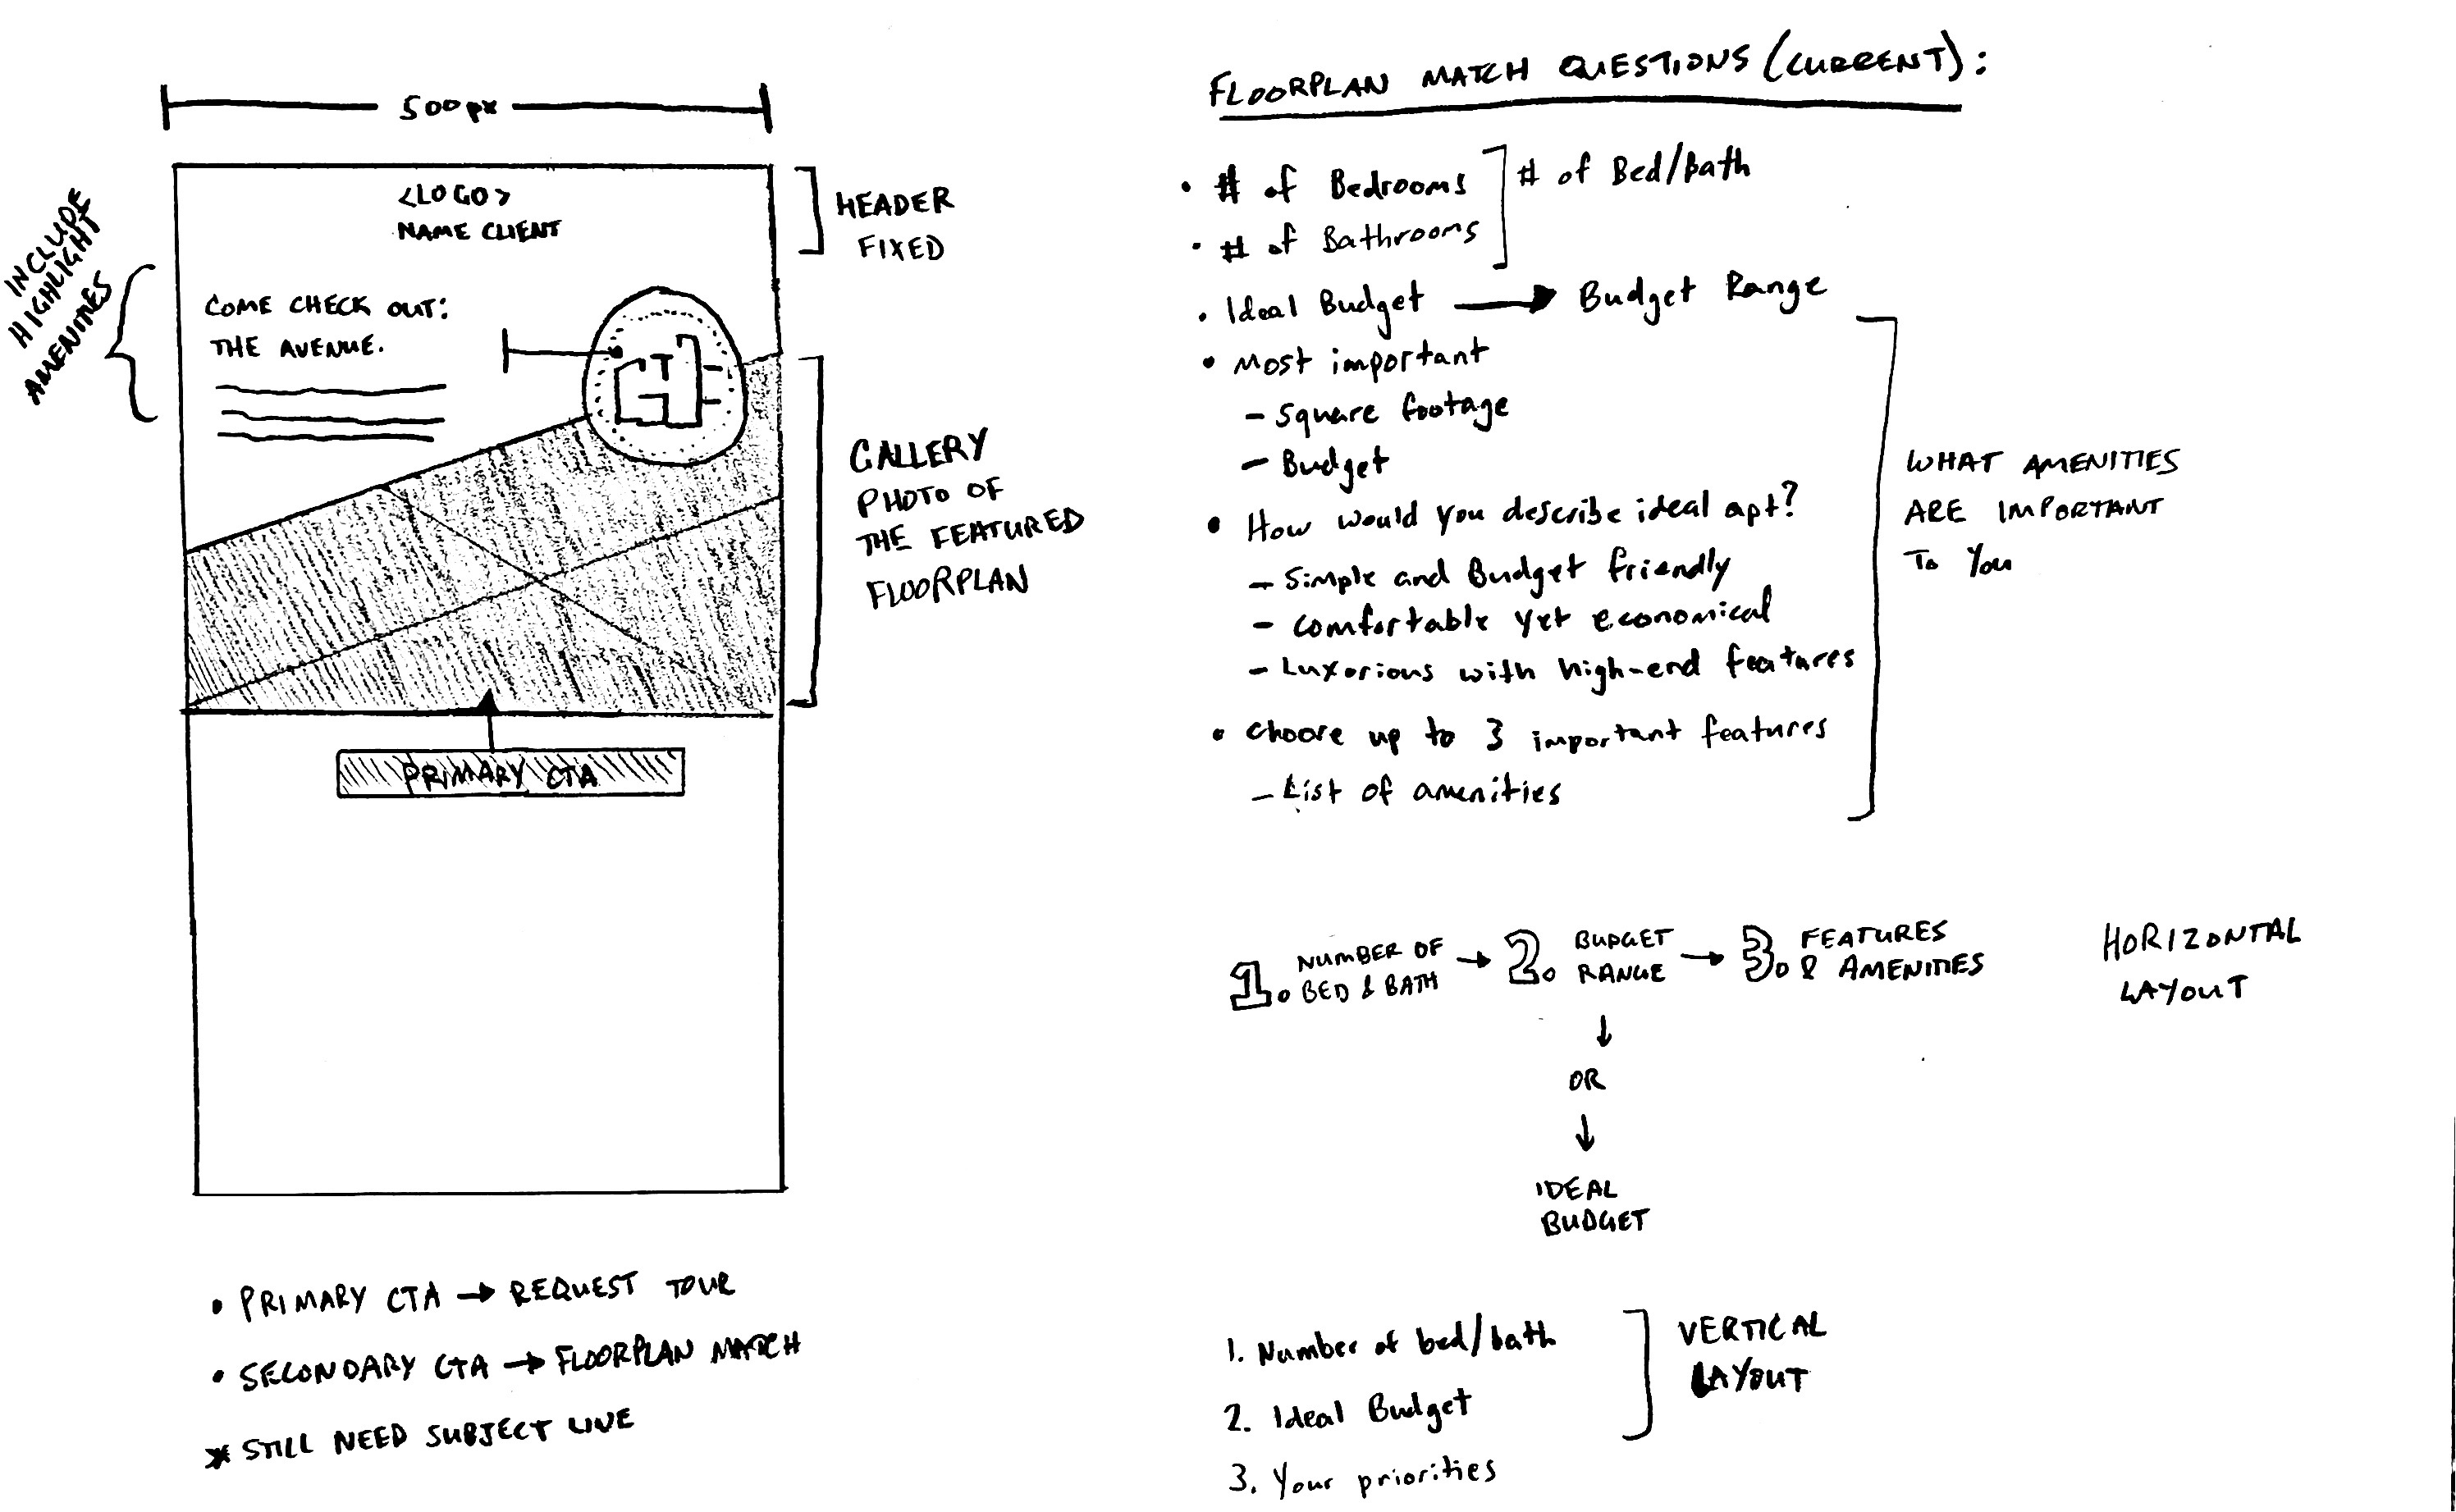 500px
<LOGO>
NAME CLIENT
HEADER
FIXED
INCLUDE
HIGHLIGHT
AMENITIES
COME CHECK OUT:
THE AVENUE.
GALLERY
PHOTO OF
THE FEATURED
FLOORPLAN
PRIMARY CTA
• PRIMARY CTA → REQUEST TOUR
• SECONDARY CTA → FLOORPLAN MATCH
* STILL NEED SUBJECT LINE
FLOORPLAN MATCH QUESTIONS (CURRENT):
• # of Bedrooms
• # of Bathrooms
# of Bed/Bath
• Ideal Budget → Budget Range
• Most important
- Square footage
- Budget
• How would you describe ideal apt?
- Simple and Budget friendly
- Comfortable yet economical
- Luxorious with high-end features
• Choose up to 3 important features
- List of amenities
WHAT AMENITIES
ARE IMPORTANT
TO YOU
1. NUMBER OF
BED & BATH
→ 2. BUDGET
RANGE
→ 3. FEATURES
& AMENITIES
HORIZONTAL
LAYOUT
↓
OR
↓
IDEAL
BUDGET
1. Number of bed/bath
2. Ideal Budget
3. Your priorities
VERTICAL
LAYOUT